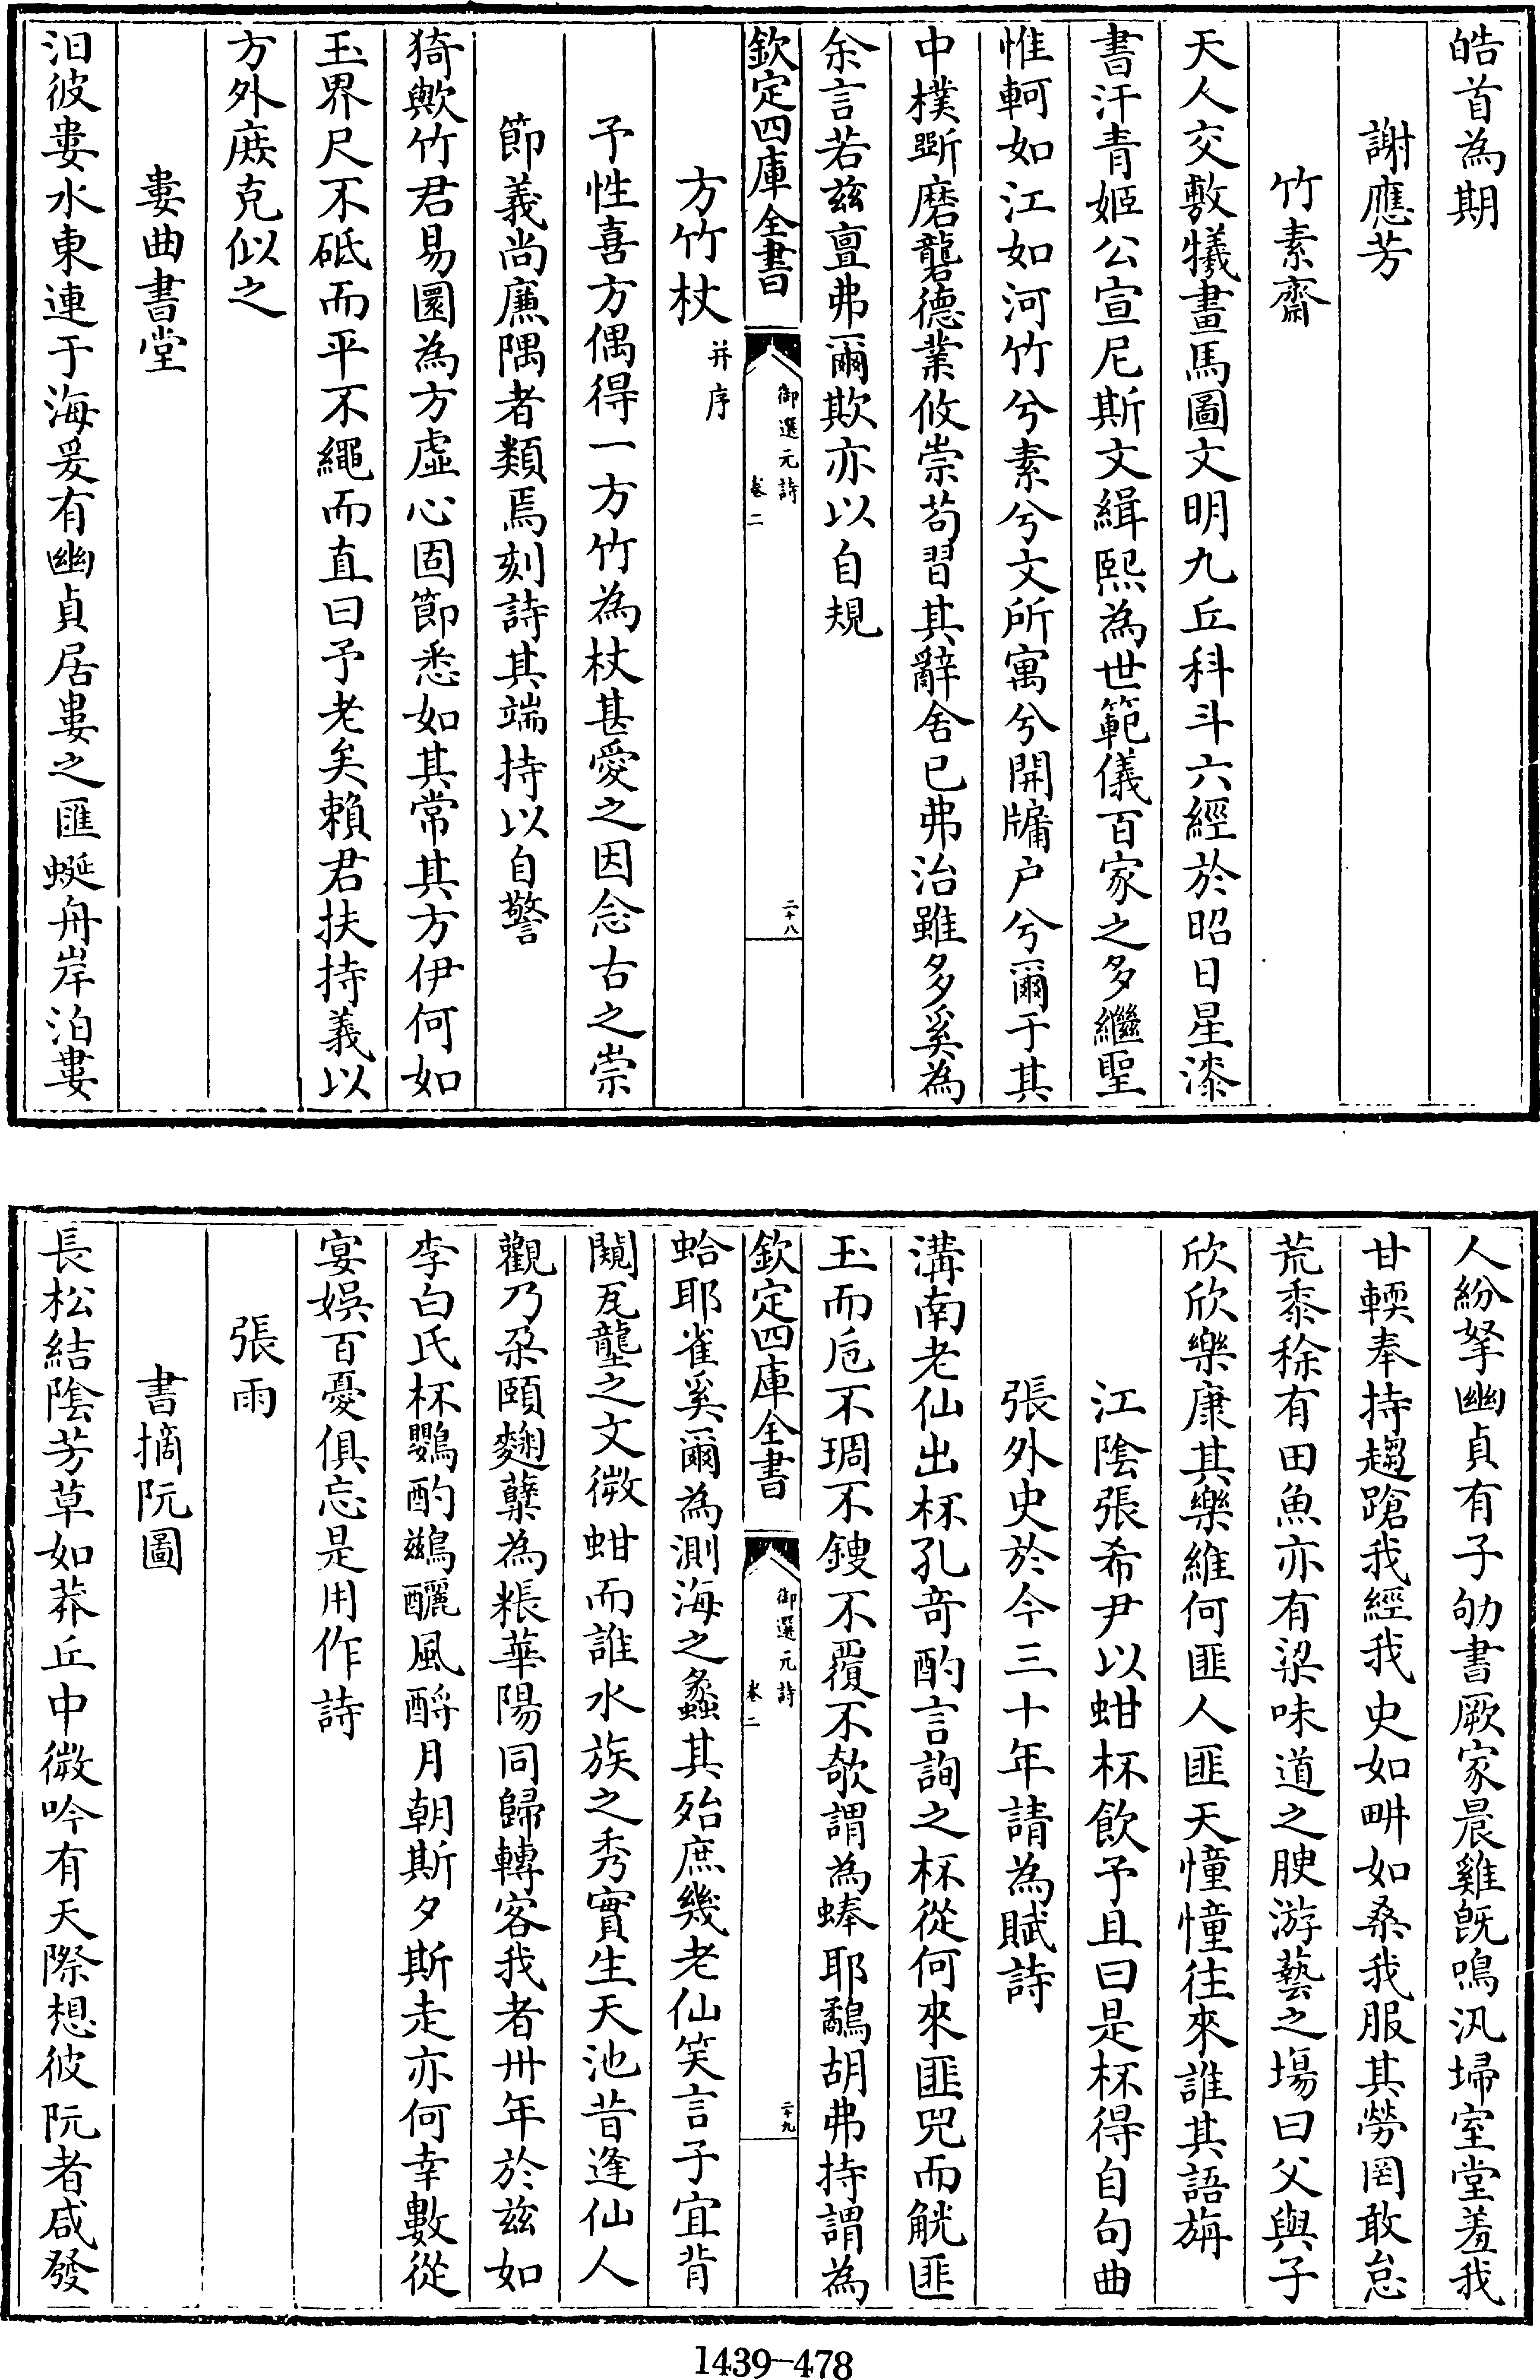 皓首為期
謝應芳
竹素齋
天人交敷犧畫馬圖文明九丘科斗六經於昭日星漆
書汗青姬公宣尼斯文緝熙為世範儀百家之多繼聖
惟軻如江如河竹兮素兮文所寓兮開牗户兮爾于其
中樸斲磨礲德業攸崇苟習其辭舍已弗治雖多奚為
余言若兹亶弗爾欺亦以自規
欽定四庫全書
御選元詩
卷二
二十八
方竹杖并序
予性喜方偶得一方竹為杖甚愛之因念古之崇
節義尚廉隅者類焉刻詩其端持以自警
猗歟竹君易圜為方虛心固節悉如其常其方伊何如
玉界尺不砥而平不繩而直曰予老矣賴君扶持義以
方外庻克似之
婁曲書堂
汨彼婁水東連于海爰有幽貞居婁之匯蜒舟岸泊婁
人紛拏幽貞有子劬書厥家晨雞既鳴汛埽室堂羞我
甘輭奉持趨蹌我經我史如畊如桑我服其勞罔敢怠
荒黍稌有田魚亦有梁味道之腴游藝之塲曰父與子
欣欣樂康其樂維何匪人匪天憧憧往來誰其語旃
江陰張希尹以蚶杯飲予且曰是杯得自句曲
張外史於今三十年請為賦詩
溝南老仙出杯孔奇酌言詢之杯從何來匪兕而觥匪
玉而巵不琱不鎪不覆不欹謂為蜯耶鷸胡弗持謂為
欽定四庫全書
御選元詩
卷二
二十九
蛤耶雀奚爾為測海之蠡其殆庶幾老仙笑言子宜背
闚瓦壟之文微蚶而誰水族之秀實生天池昔逢仙人
觀乃朶頤麹蘖為粻華陽同歸轉客我者卅年於兹如
李白氏杯鸚酌鷀釃風酹月朝斯夕斯走亦何幸數從
宴娯百憂俱忘是用作詩
張雨
書摘阮圖
長松結隂芳草如莽丘中微吟有天際想彼阮者咸發
1439-478